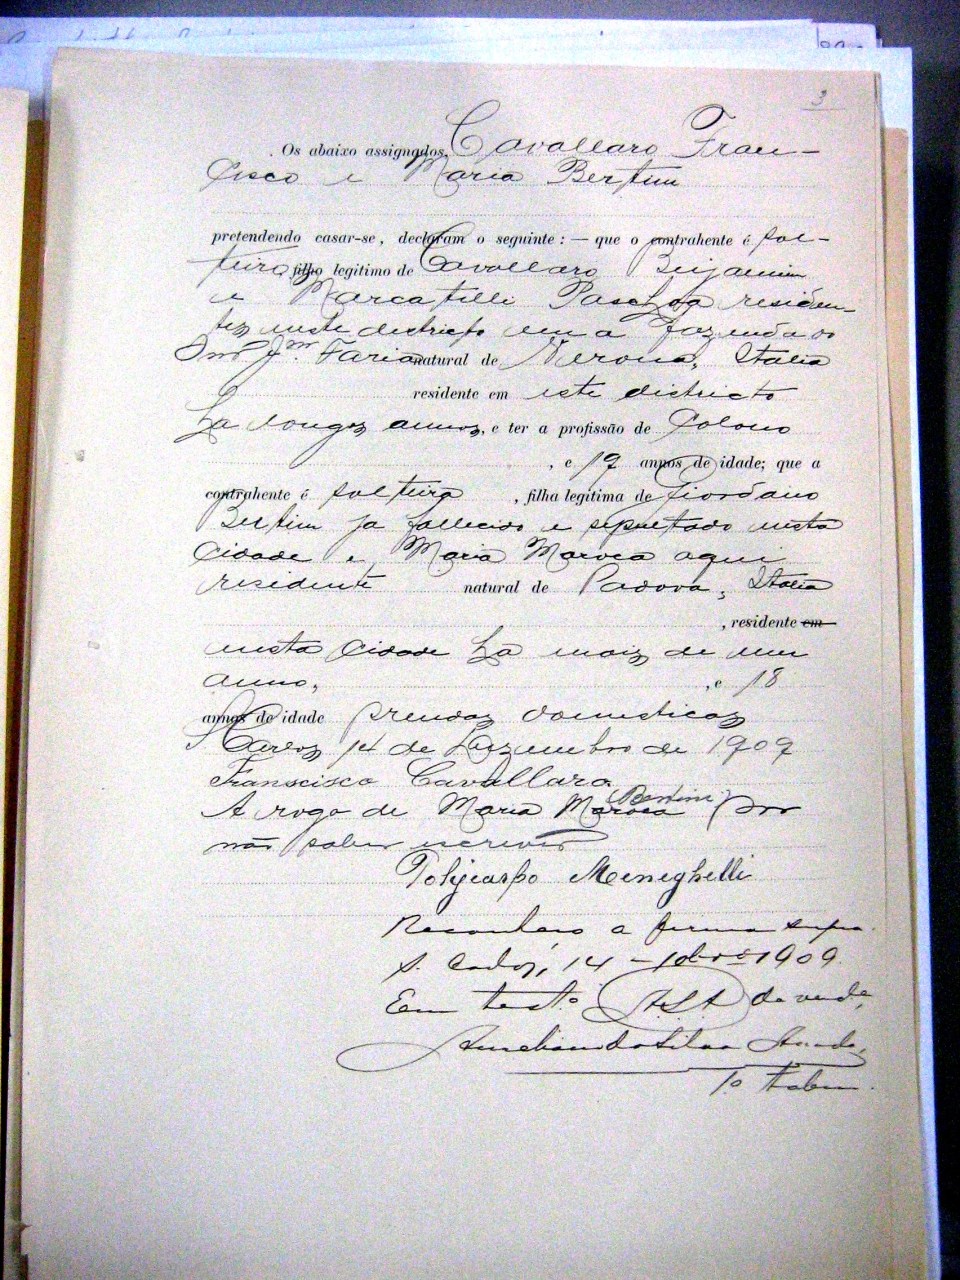 3
Os abaixo assignados, Cavallaro Fran-
cisco e Maria Bertini
pretendendo casar-se, declaram o seguinte: — que o contrahente é sol-
teiro, filho legitimo de Cavallaro Benjamim
e Marcatilli Paschoa residen-
tes neste districto em a fazenda do
Faria natural de Verona, Italia
residente em este districto
ha longos annos, e ter a profissão de Colono
, e 19 annos de idade; que a
contrahente é solteira, filha legitima de Giordano
Bertini ja fallecido e sepultado nesta
cidade e Maria Maroca aqui
residente natural de Padova, Italia
, residente em
nesta cidade ha mais de um
anno, , e 18
annos de idade prendas domesticas
S. Carlos 14 de Dezembro de 1909
Franscisco Cavallaro
A rogo de Maria Maroca (Bertini) por
não saber escrever
Polycarpo Meneghelli
Reconheço a firma supra.
S. Carlos, 14 - 10bro 1909.
Em test.o da verde,
da Silva
1.o Tabm.